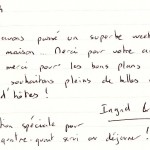 avons passé un superbe week
maison... Merci pour votre a
merci pour les bons plans
souhaitons pleins de belles
d'hôtes !
Ingrid
tion spéciale pour
quatre-quart servi au déjeuner !